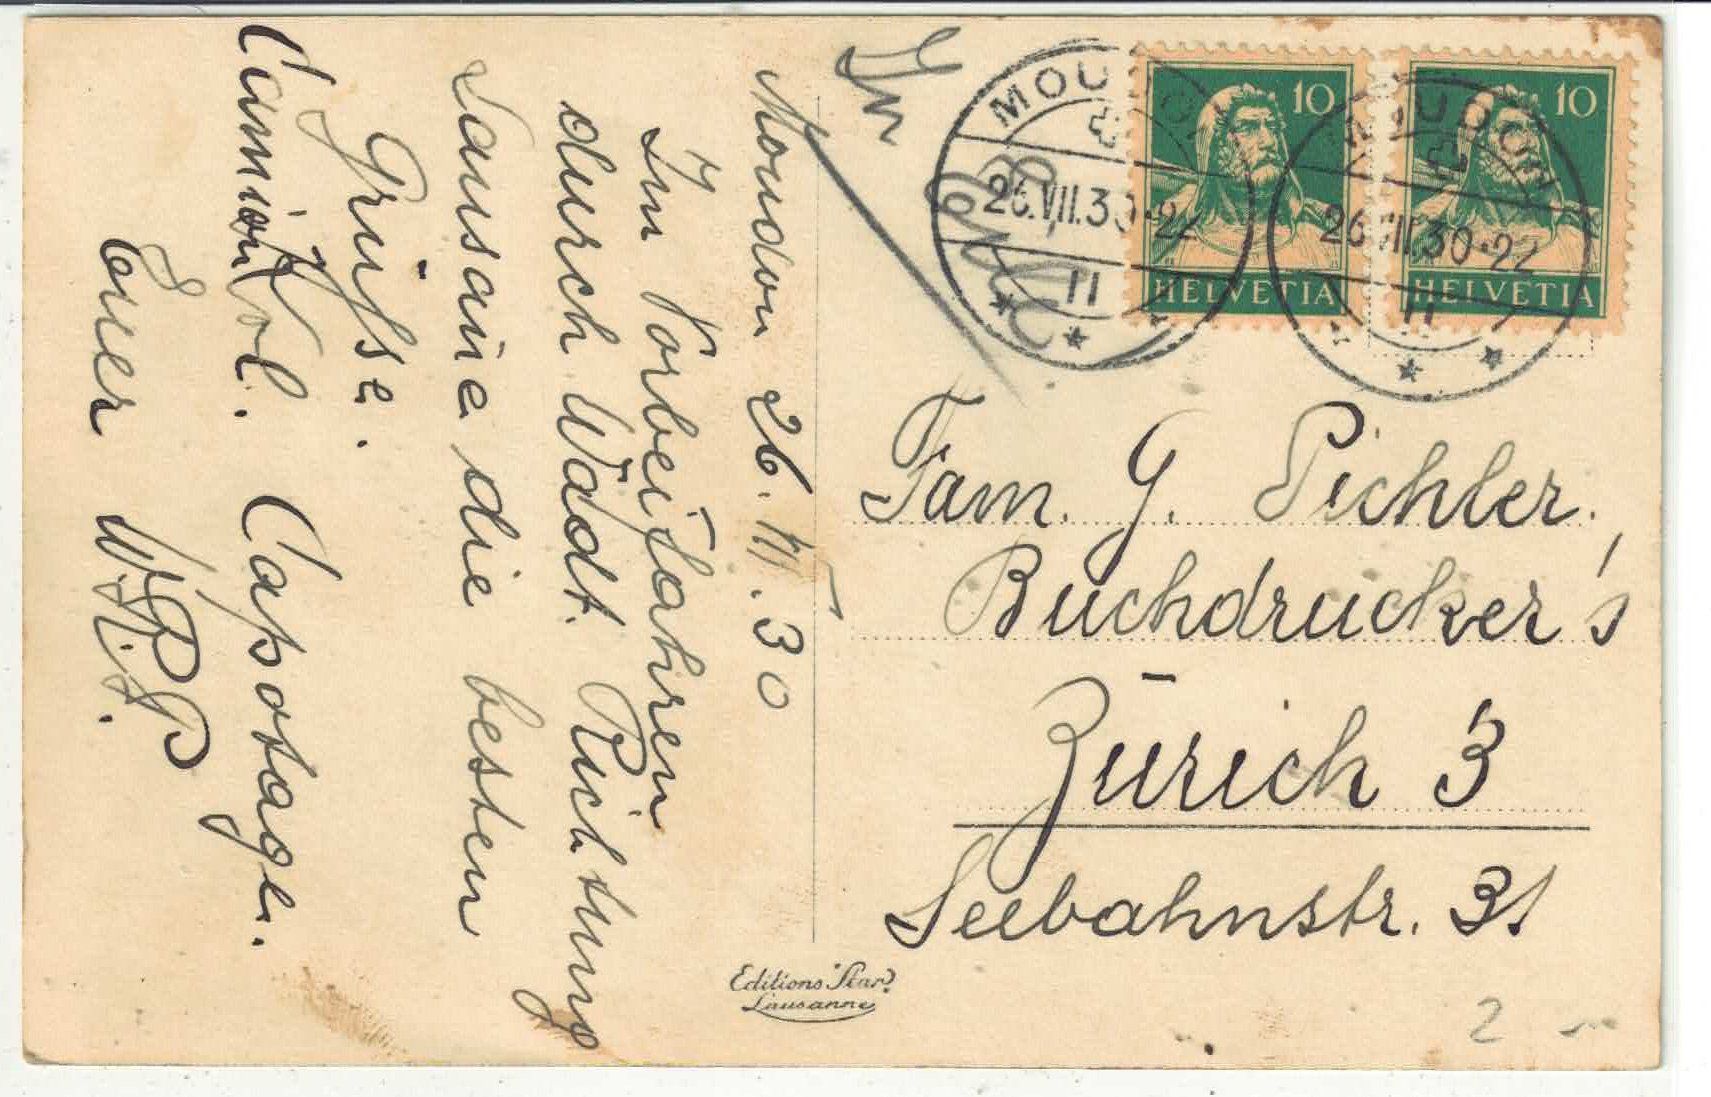 Moudon 26. VII. 30
Im Vorbeifahren
durch Wadt. Richtung
Lausane die besten
Grüsse.
Camion Kol. Capotage.
Euer
MOUDON
26.VII.30-22
HELVETIA
10
MOUDON
26.VII.30-22
HELVETIA
10
Fam. G. Pichler.
Buchdrucker's
Zürich 3
Seebahnstr. 31
Editions Star
Lausanne
2